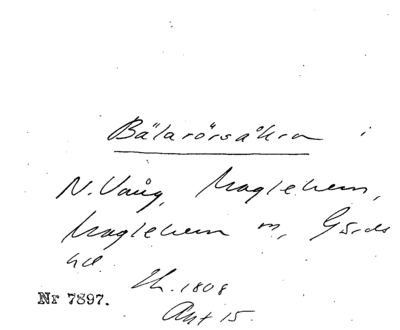 Bälarörsåkra
N. Vång, Maglehem,
Maglehem sn, Gärds
hd.
Sk. 1808
Akt 15.
Nr 7897.